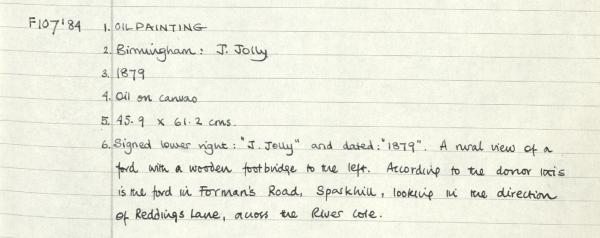 F107'84 1. OIL PAINTING
2. Birmingham: J. Jolly
3. 1879
4. Oil on canvas
5. 45.9 x 61.2 cms.
6. Signed lower right: "J. Jolly" and dated: "1879". A rural view of a
ford with a wooden footbridge to the left. According to the donor this
is the ford in Forman's Road, Sparkhill, looking in the direction
of Reddings Lane, across the River Cole.